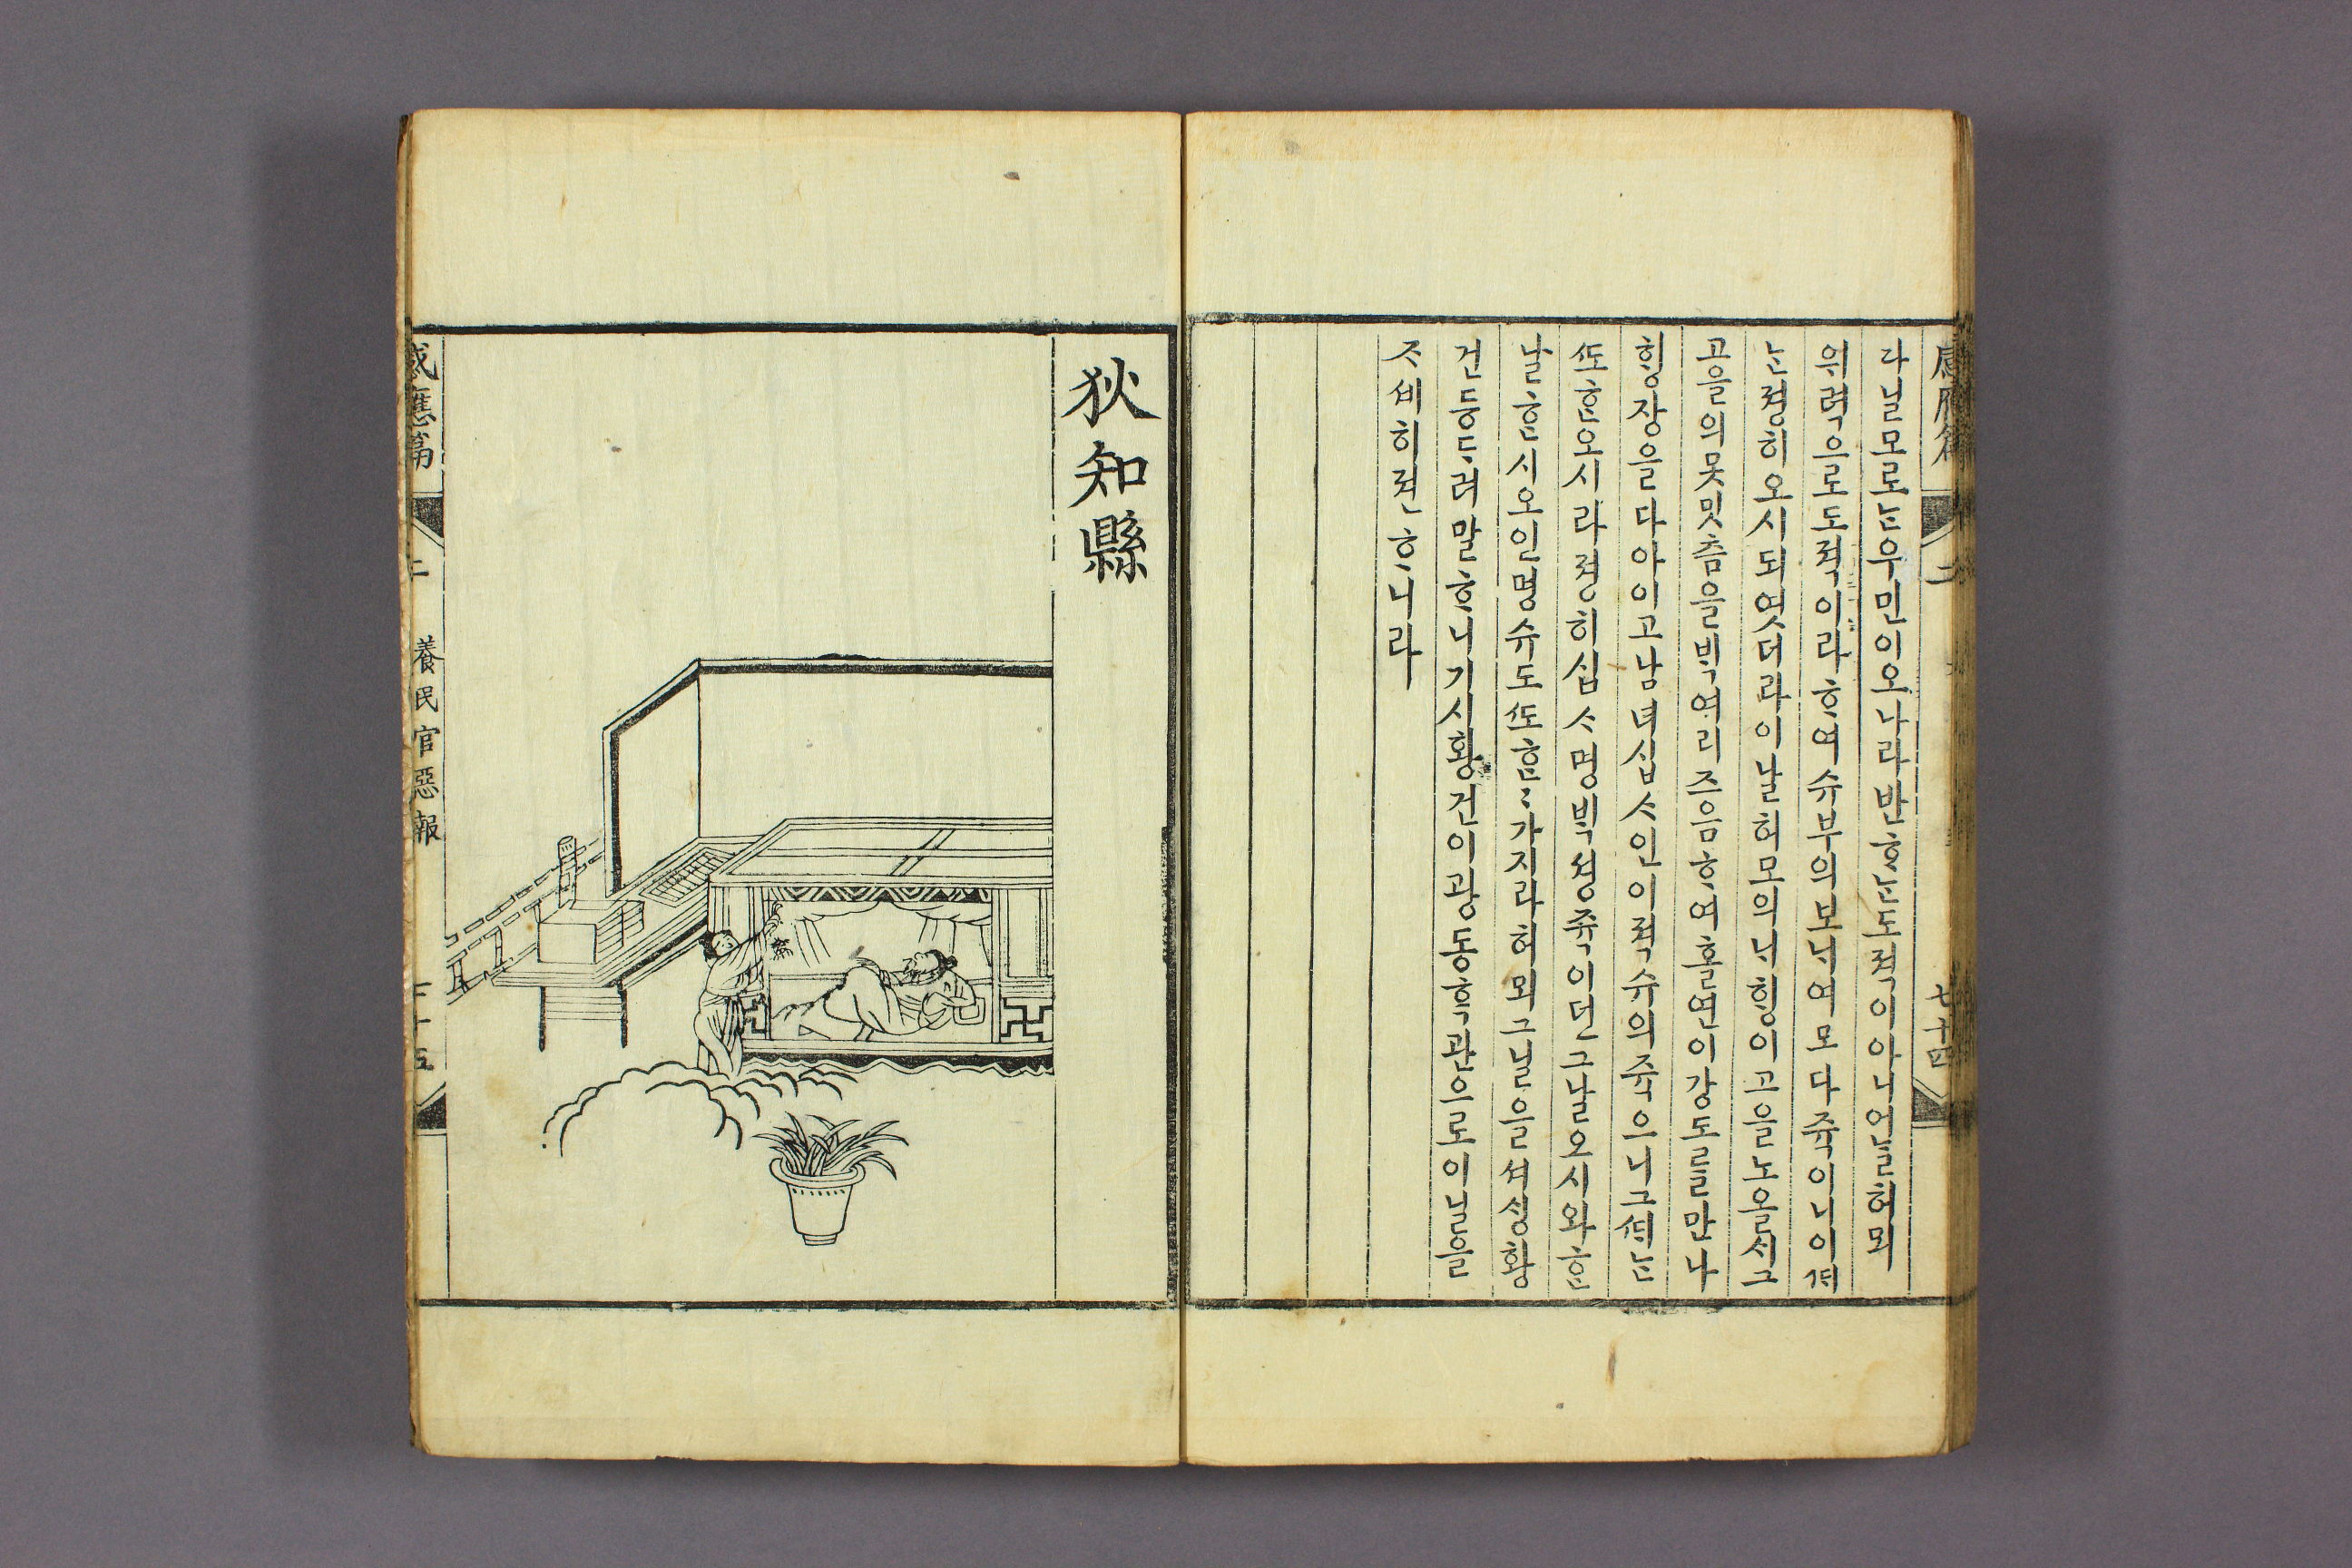 感應篇 二 七十四
라닐모로ᄂᆞᆫ우민이오나라반ᄒᆞᄂᆞᆫ도적이아니어늘회뫼
위력으로도적이라ᄒᆞ여슈부의보ᄂᆡ여모다쥭이니이ᄯᆡ
ᄂᆞᆫ졍히오시되엿더라이날회모의ᄂᆡᄒᆡᆼ이고을노올ᄉᆡ그
고을의못밋츰을ᄇᆡᆨ여리즈음ᄒᆞ여홀연이강도를만나
ᄒᆡᆼ장을다아이고남녀십ᄉᆞ인이젹슈의쥭으니그ᄯᆡᄂᆞᆫ
ᄯᅩᄒᆞᆫ오시라졍히십ᄉᆞ명ᄇᆡᆨ셩쥭이던그날오시와ᄒᆞᆫ
날ᄒᆞᆫ시오인명슈도ᄯᅩᄒᆞᆫ〻가지라회뫼그닐을셔ᄉᆡᆼ황
건등ᄃᆞ려말ᄒᆞ니기시황건이광동ᄒᆞᆨ관으로이닐을
ᄌᆞ셰히젼ᄒᆞ니라
狄知縣
感應篇 二 養民官惡報 七十五